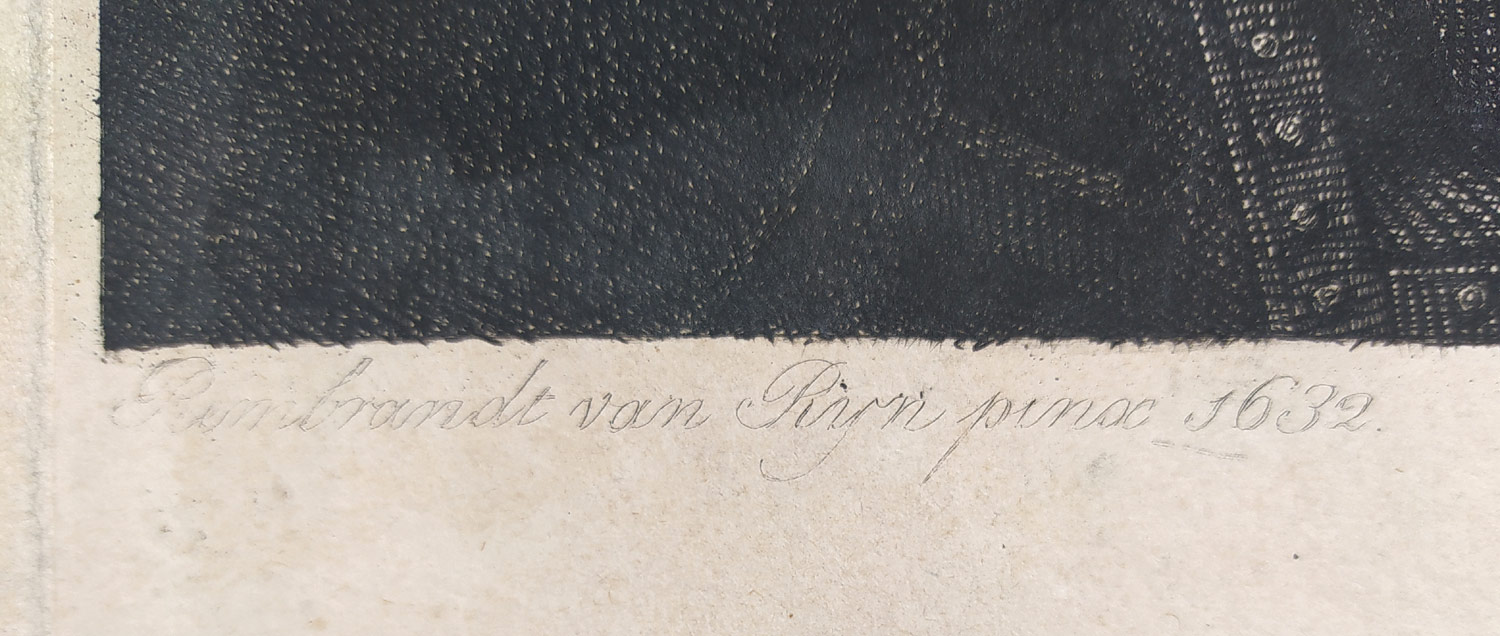 Rembrandt van Ryn pinx 1632.